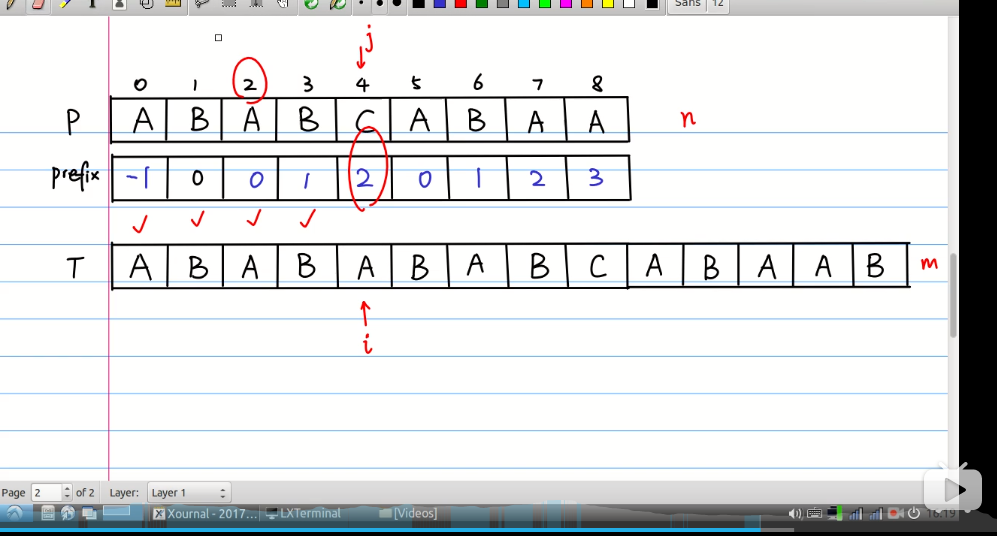 Sans 12
j
0 1 2 3 4 5 6 7 8
P A B A B C A B A A n
prefix -1 0 0 1 2 0 1 2 3
✓ ✓ ✓ ✓
T A B A B A B A B C A B A A B m
i
Page 2 of 2 Layer: Layer 1
Xournal - 2017... LXTerminal [Videos] 16:19